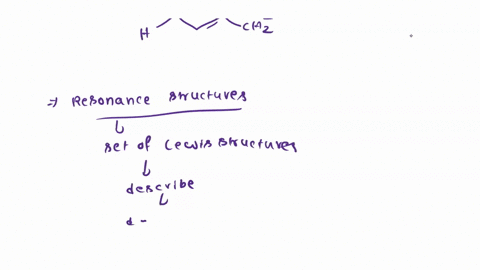 H CH2
=> Resonance structures
set of Lewis structures
describe
d -